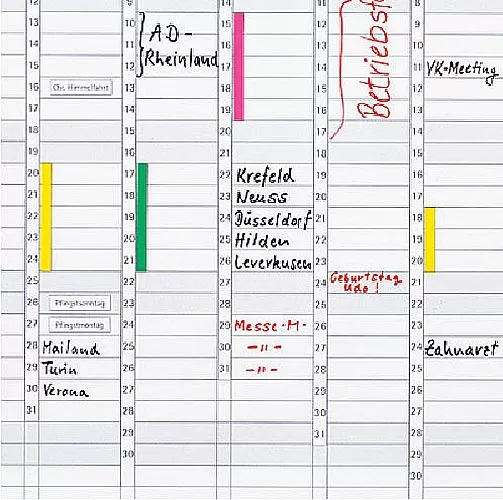 13
14
15
16 Chr. Himmelfahrt
17
18
19
20
21
22
23
24
25
26 Pfingstsonntag
27 Pfingstmontag
28 Mailand
29 Turin
30 Verona
31
10 AD-
11 Rheinland
12
13
14
15
16
17
18
19
20
21
22
23
24
25
26
27
28
29
30
15
16
17
18
19
20
21
22 Krefeld
23 Neuss
24 Düsseldorf
25 Hilden
26 Leverkusen
27
28
29 Messe-M-
30 -"-
31 -"-
Betriebsf
12
13
14
15
16
17
18
19
20
21
22
23
24 Geburtstag
Udo!
25
26
27
28
29
30
31
9
10
11 VK-Meeting
12
13
14
15
16
17
18
19
20
21
22
23
24 Zahnarzt
25
26
27
28
29
30